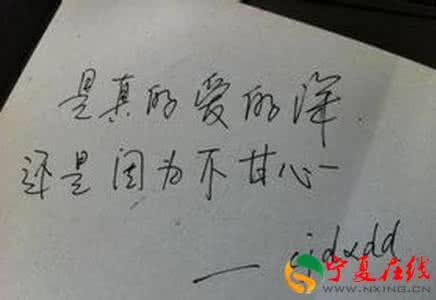 是真的爱的深.
还是因为不甘心
宁夏在线
WWW.NXING.CN